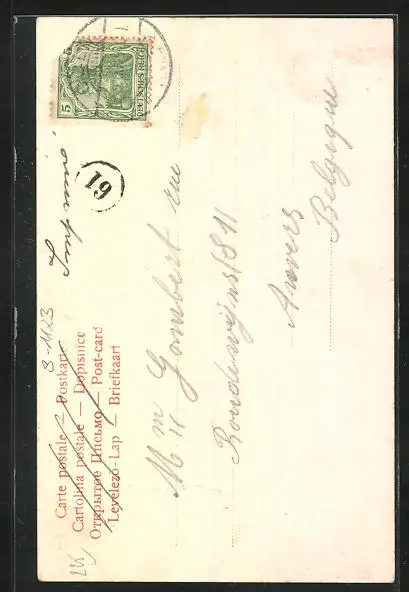 Carte postale — Postkarte
Cartolina postale — Dopisnice
Открытое Письмо — Post-card
Levelező-Lap — Briefkaart
Imprimé
5
DEUTSCHES REICH
19
Mme Gombert rue
811
Anvers
Belgique